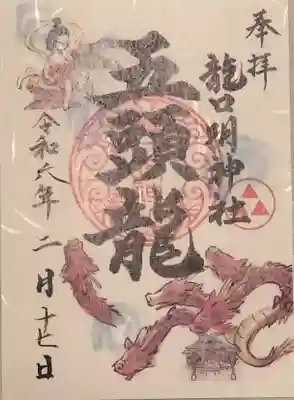 奉拝
龍口明神社
五頭龍
令和六年 二月十七日